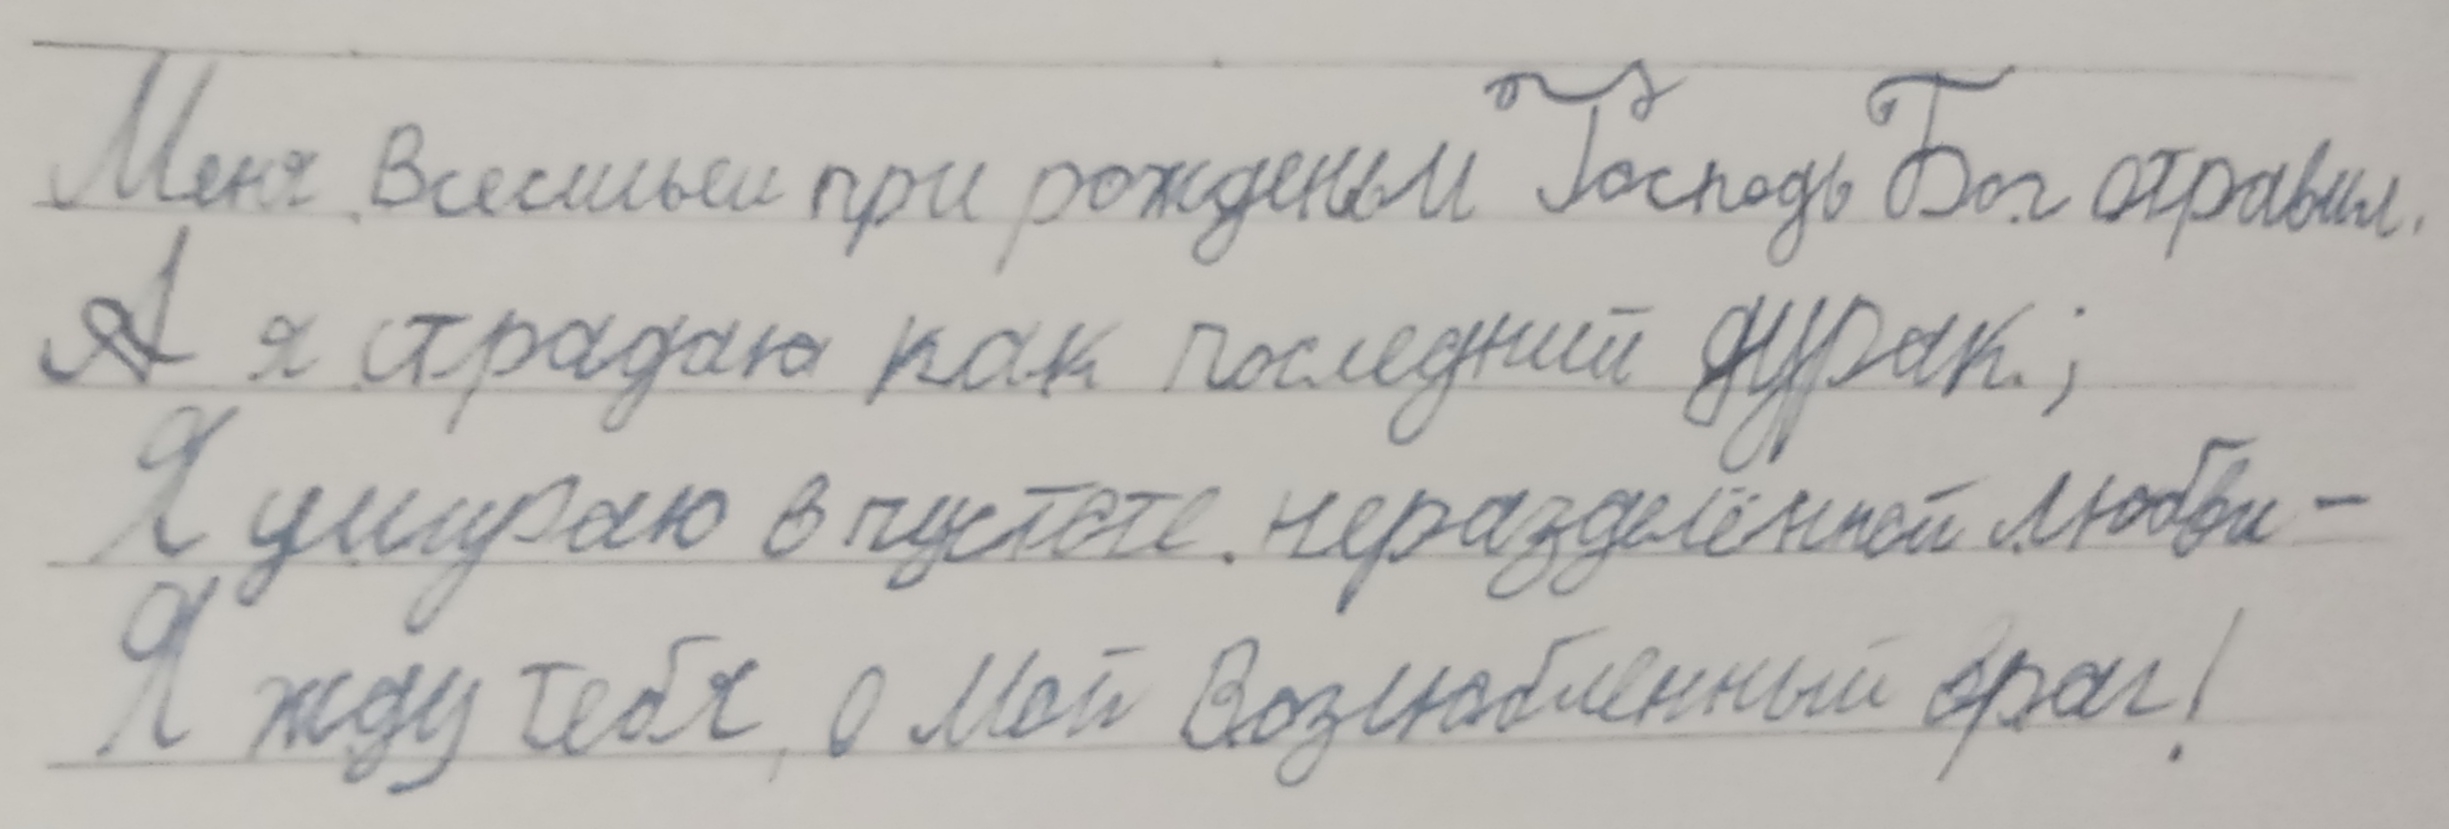 Меня Всесильем при рожденьи Господь Бог отравил.
А я страдаю как последний дурак.;
Я умираю в пустоте. неразделённой любви -
Я жду тебя, о Мой Возлюбленный враг!